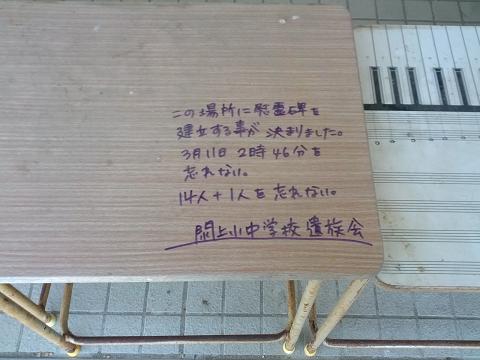 この場所に慰霊碑を
建立する事が決まりました。
3月11日 2時46分を
忘れない。
14人+1人を忘れない。
閖上小中学校遺族会